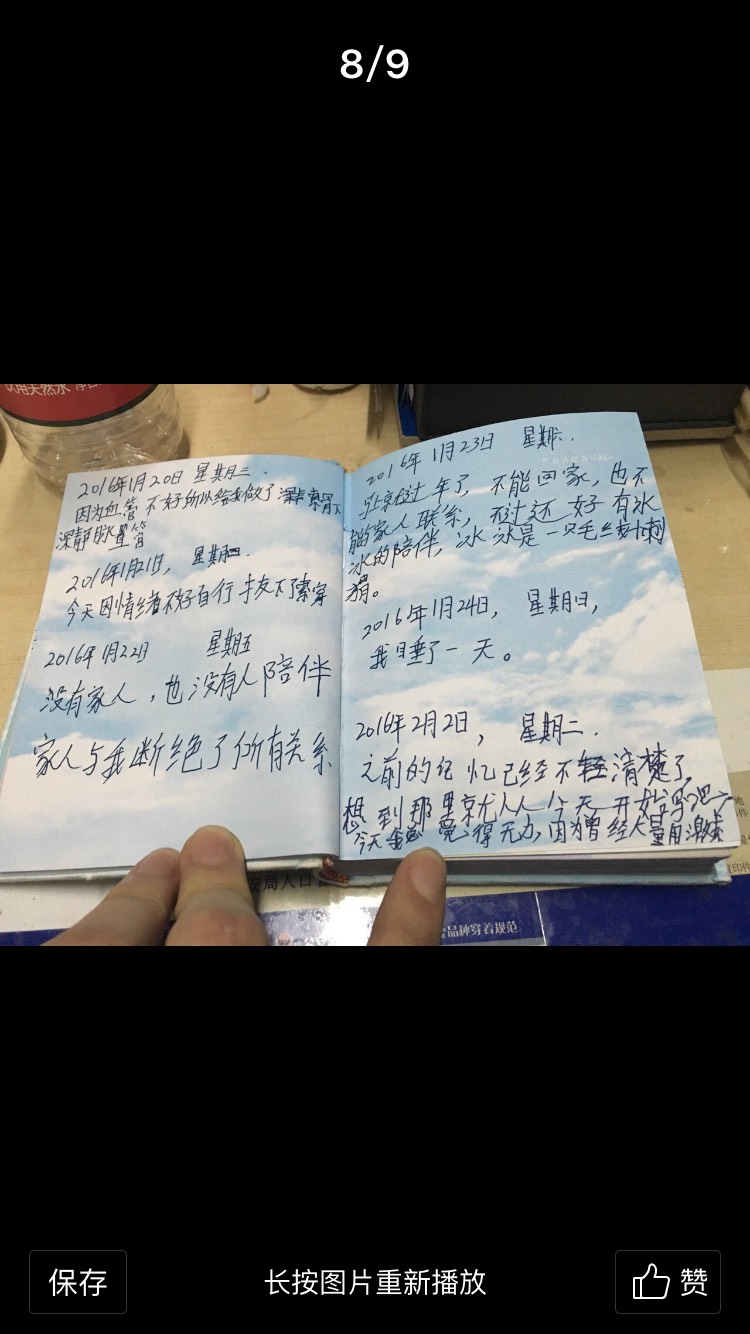 8/9
饮用天然水
2016年1月20日 星期三.
因为血管不好所以给我做了深点索骨下
深静脉置管
2016年1月21日, 星期四.
今天因情绪不好自行
2016年1月22日 星期五
没有家人,也没有人陪伴
家人与我断绝了所有关系
2016年1月23日 星期六.
马上就要过年了,不能回家,也不
能家人联系,不过还好有冰
冰的陪伴,冰冰是一只毛绒刺
猬。
2016年1月24日, 星期日,
我睡了一天。
2016年2月2日, 星期二.
之前的纪忆已经不轻清楚了,
想到那里就从今天开始写吧
今天我觉得无力,因为曾经大量用激素
安局人口
品种穿着规范
保存
长按图片重新播放
赞